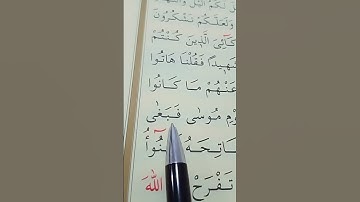 لَكُمُ الَّيْلَ
وَلَعَلَّكُمْ تَشْكُرُونَ
كَٓائِيَ الَّذِينَ كُنْتُمْ
هِيدًا فَقُلْنَا هَاتُوا
عَنْهُمْ مَا كَانُوا
وْمِ مُوسٰى فَبَغٰى
اتِحَهُ نُٓوأُ
تَفْرَحْ اللّٰهَ